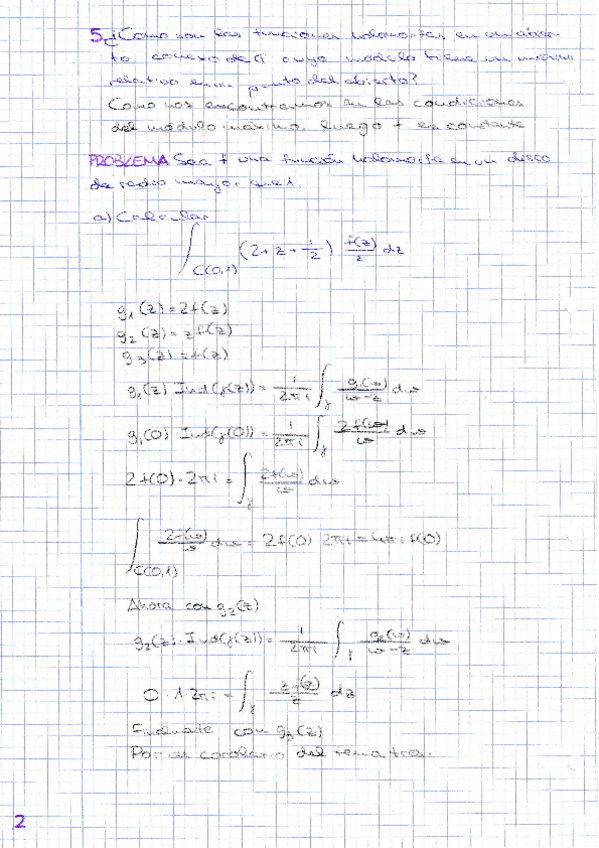 5. ¿Como son las funciones holomorfas en un abier-
to conexo de ℂ cuyo modulo tiene un máximo
relativo en un punto del abierto?
Como nos encontramos en las condiciones
del módulo máximo, luego f es constante
PROBLEMA Sea f una función holomorfa en un disco
de radio mayor que 1.
a) Calcular
∫_{C(0,1)} (2+z+1/z) f(z)/z dz
g₁(z)=2f(z)
g₂(z)=zf(z)
g₃(z)=f(z)
g₁(z) Ind(γ(z))= 1/2πi ∫_γ g₁(w)/w-z dw
g₁(0) Ind(γ(0))= 1/2πi ∫_γ 2f(w)/w dw
2f(0)·2πi = ∫_γ 2f(w)/w dw
∫_{C(0,1)} 2f(w)/w dw = 2f(0) 2πi = 4πi f(0)
Ahora con g₂(z)
g₂(z)·Ind(γ(z))= 1/2πi ∫_γ g₂(w)/w-z dw
0·1 2πi = ∫_γ zf(z)/z dz
con g₃(z)
Por el corolario del tema tres.
2